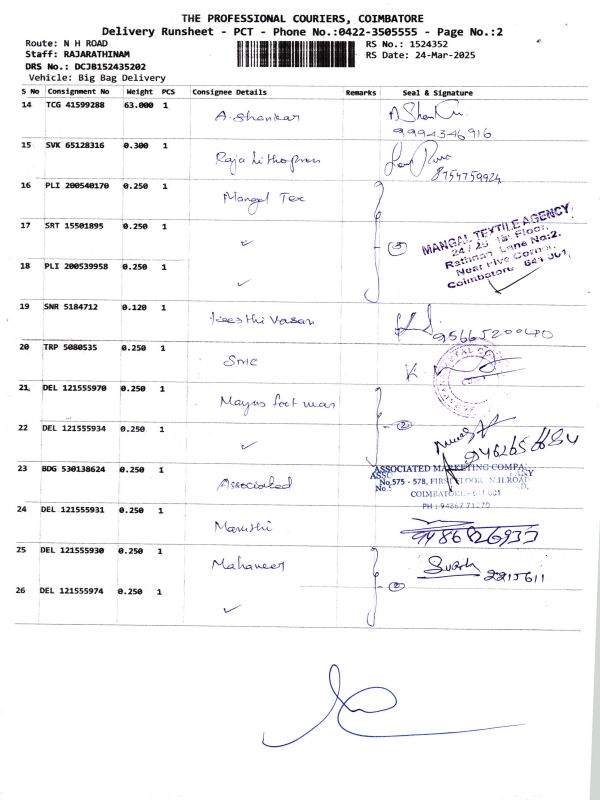 THE PROFESSIONAL COURIERS, COIMBATORE
Delivery Runsheet - PCT - Phone No.:0422-3505555 - Page No.:2
Route: N H ROAD
RS No.: 1524352
Staff: RAJARATHINAM
RS Date: 24-Mar-2025
DRS No.: DCJB152435202
Vehicle: Big Bag Delivery
S No Consignment No Weight PCS Consignee Details Remarks Seal & Signature
14 TCG 41599288 63.000 1 A. Shankar
9994346916
15 SVK 65128316 0.300 1 Raja Lithopress
8754759924
16 PLI 200540170 0.250 1 Mangal Tex
17 SRT 15501895 0.250 1 ✓ 3
MANGAL TEXTILE AGENCY
24 / 26 1st Floor,
Rathnan Lane No:2.
Near Five Corner,
Coimbatore 641 001
18 PLI 200539958 0.250 1 ✓
19 SNR 5184712 0.120 1 Keerthi Vasan
9566520040
20 TRP 5080535 0.250 1 SMC
21 DEL 121555970 0.250 1 Mayas foot wear
22 DEL 121555934 0.250 1 ✓ 2
23 BDG 530138624 0.250 1 Associated
ASSOCIATED MARKETING COMPANY
No.575 - 578, FIRST FLOOR N.H.ROAD
COIMBATORE - 641 001
PH : 94867 71270
24 DEL 121555931 0.250 1 Maruthi
9486826933
25 DEL 121555930 0.250 1 Mahaveer
2215611
26 DEL 121555974 0.250 1 ✓ 2